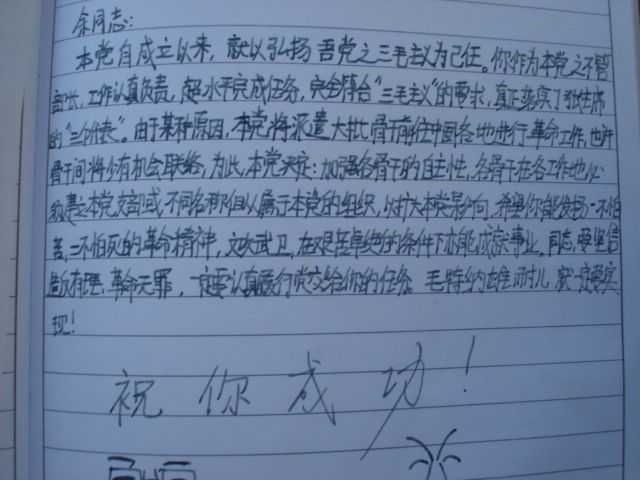 余同志:
本党自成立以来，就以弘扬吾党之三毛主义为己任。你作为本党之不管
部长，工作认真负责，超水平完成任务，完全符合"三毛主义"的要求，真正落实了张主席
的"三个代表"。由于某种原因，本党将派遣大批骨干前往中国各地进行革命工作，也许
骨干间将少有机会联络，为此，本党决定：加强各骨干的自主性，各骨干在各工作地必
须建立本党支部或不同名称但以属于本党的组织，以扩大本党影响。希望你能发扬一不怕
苦，二不怕死的革命精神，文攻武卫，在艰苦卓绝的条件下亦能成族事业。同志，要坚信
造反有理，革命无罪，一定要认真履行党交给你的任务。毛特纳雄耐儿就一定要实
现！
祝你成功！